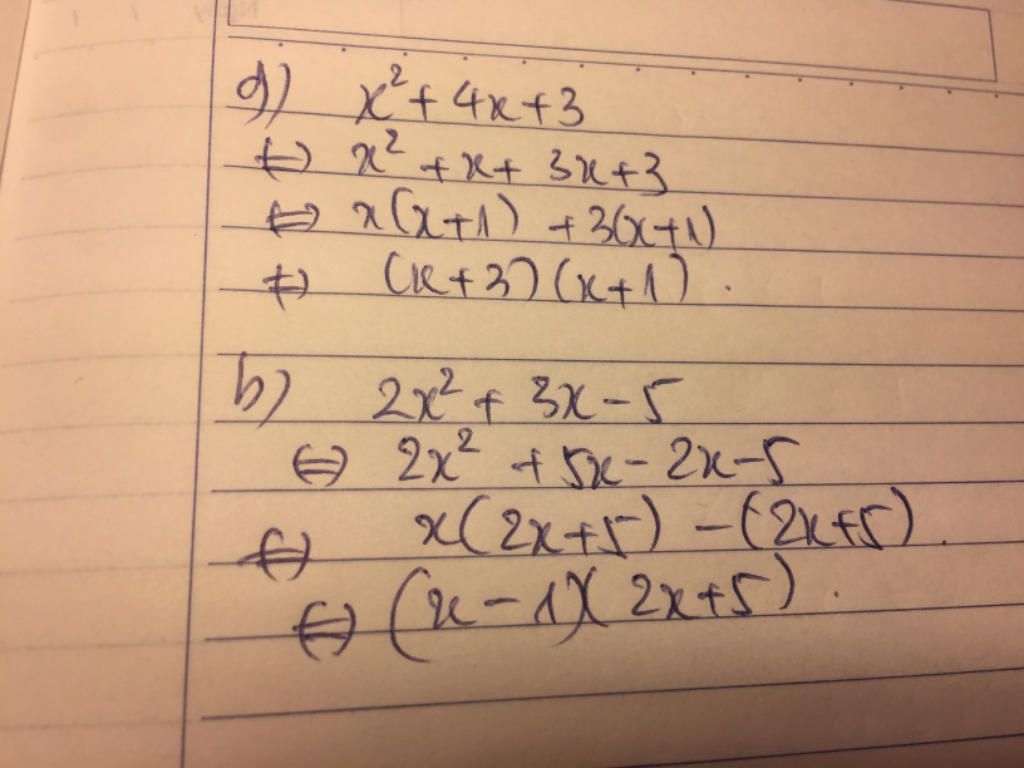 a) x² + 4x + 3
⇔ x² + x + 3x + 3
⇔ x(x+1) + 3(x+1)
⇔ (x+3)(x+1).
b) 2x² + 3x - 5
⇔ 2x² + 5x - 2x - 5
⇔ x(2x+5) - (2x+5).
⇔ (x-1)(2x+5).